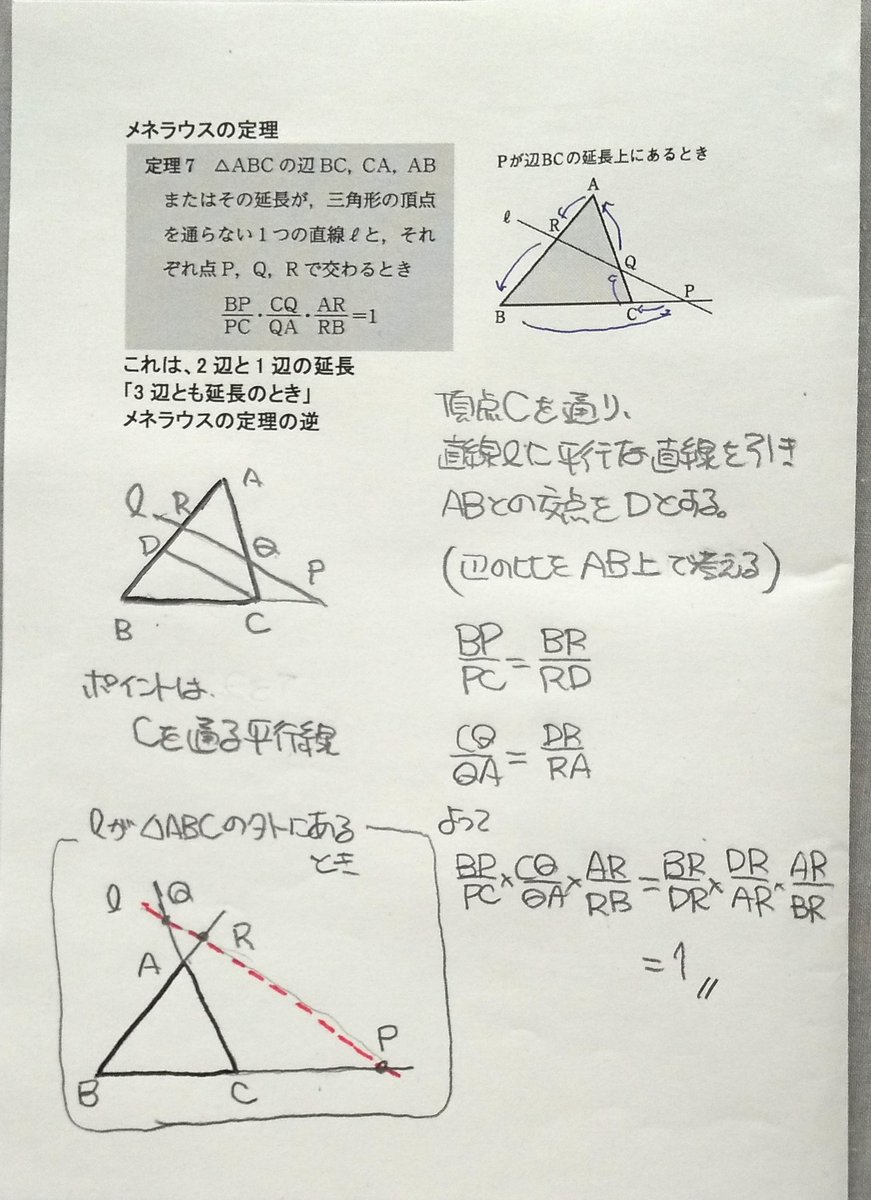 メネラウスの定理
定理7 △ABCの辺BC，CA，AB
またはその延長が，三角形の頂点
を通らない1つの直線ℓと，それ
ぞれ点P，Q，Rで交わるとき
BP/PC・CQ/QA・AR/RB=1
これは、2辺と1辺の延長
「3辺とも延長のとき」
メネラウスの定理の逆
Pが辺BCの延長上にあるとき
A
ℓ
R
Q
P
B
C
頂点Cを通り、
直線ℓに平行な直線を引き
ABとの交点をDとする。
(辺の比をAB上で考える)
A
ℓ R
D
Q
P
B
C
BP/PC=BR/RD
CQ/QA=DR/RA
ポイントは、
Cを通る平行線
よって
BP/PC×CQ/QA×AR/RB=BR/DR×DR/AR×AR/BR
=1〃
ℓが△ABCの外にある
とき
ℓ
Q
R
A
P
B
C